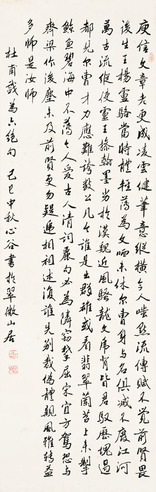 庾信文章老更成凌雲健筆意縱橫今人嗤點流傳賦不覺前賢畏
後生王楊盧駱當時體輕薄為文哂未休爾曹身與名俱滅不廢江河
萬古流縱使盧王操翰墨劣於漢魏近風騷龍文虎脊皆君馭歷塊過
都見爾曹才力應難誇數公凡今誰是出群雄或看翡翠蘭苕上未掣
鯨魚碧海中不薄今人愛古人清詞麗句必為鄰竊攀屈宋宜方駕恐與
齊梁作後塵未及前賢更勿疑遞相祖述復誰先別裁偽體親風雅轉益
多師是汝師
杜甫戲為六絕句 己巳中秋心谷書於翠微山居